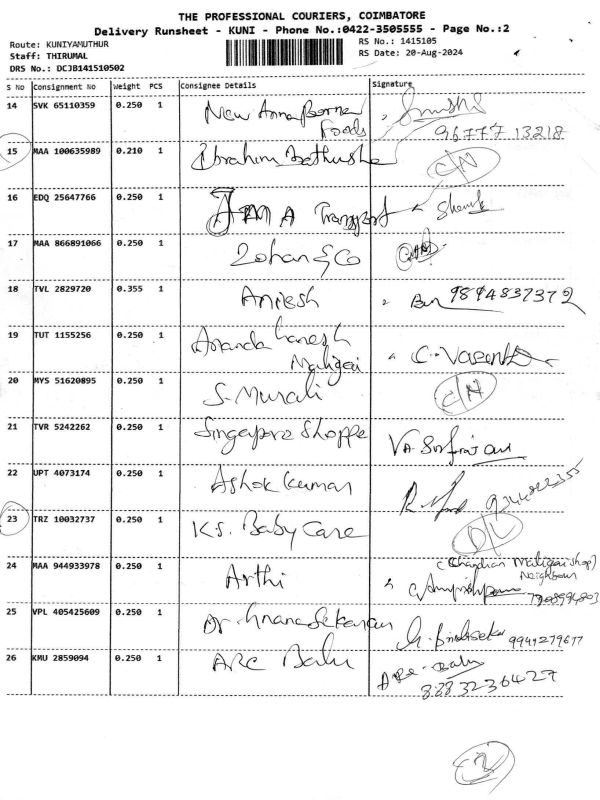 THE PROFESSIONAL COURIERS, COIMBATORE
Delivery Runsheet - KUNI - Phone No.:0422-3505555 - Page No.:2
Route: KUNIYAMUTHUR
RS No.: 1415105
Staff: THIRUMAL
RS Date: 20-Aug-2024
DRS No.: DCJB141510502
S No Consignment No Weight PCS Consignee Details Signature
14 SVK 65110359 0.250 1 New Anna
Foods 96777 13218
15 MAA 100635989 0.210 1 Ibrahim Bathusha C/N
16 EDQ 25647766 0.250 1 A Transport
17 MAA 866891066 0.250 1 Zohan & Co
18 TVL 2829720 0.355 1 Aniesh 9894837372
19 TUT 1155256 0.250 1 Ananda Ganesh
Maligai C. Vasanth
20 MYS 51620895 0.250 1 S. Murali C/N
21 TVR 5242262 0.250 1 Singapore Shoppe
22 UPT 4073174 0.250 1 Ashok Kumar
23 TRZ 10032737 0.250 1 K.S. Baby Care D/L
24 MAA 944933978 0.250 1 Arthi (Chandian Maligai shop)
Neighbour
25 VPL 405425609 0.250 1 Dr. Gnanasekaran 9941279677
26 KMU 2859094 0.250 1 ARC Balu ARC Balu
8883236427